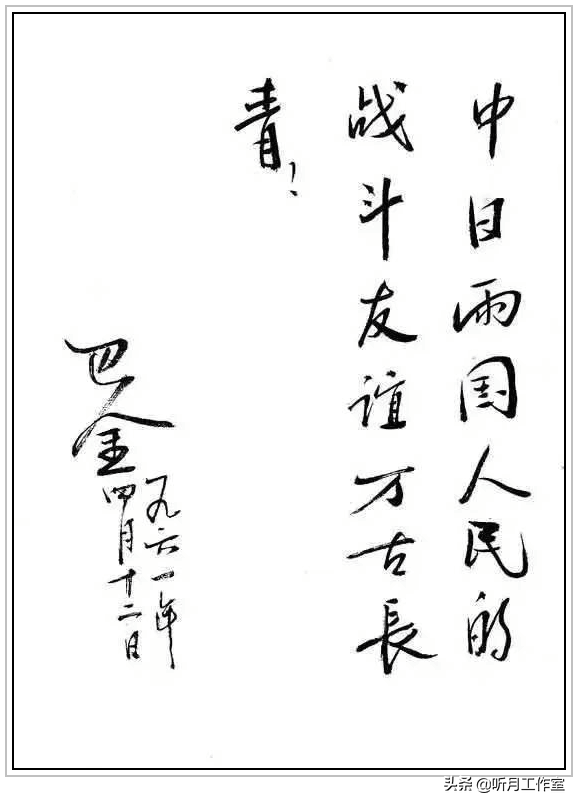 中日兩国人民的
战斗友谊万古長
青！
巴金
一九六一年
四月十二日
头条 @听月工作室